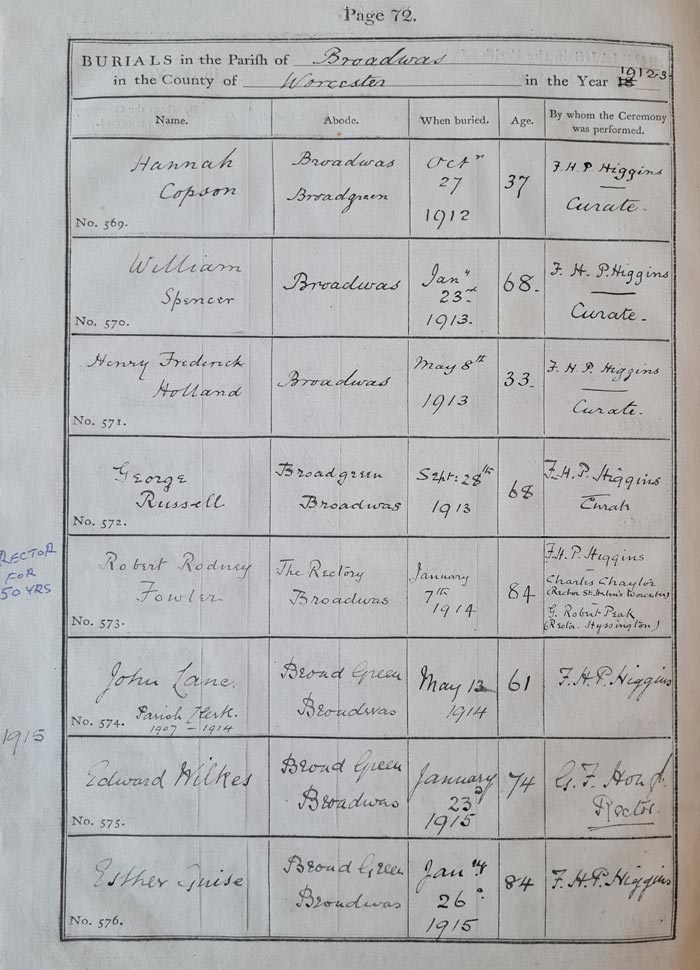 Page 72.
BURIALS in the Parish of Broadwas
in the County of Worcester in the Year 18 1912-3
Name. Abode. When buried. Age. By whom the Ceremony was performed.
Hannah Copson
No. 569.
Broadwas
Broadgreen
Octr
27
1912
37
F. H. P. Higgins
Curate.
William Spencer
No. 570.
Broadwas
Jany
23rd
1913.
68.
F. H. P. Higgins
Curate.
Henry Frederick
Holland
No. 571.
Broadwas
May 8th
1913
33.
F. H. P. Higgins
Curate.
George
Russell
No. 572.
Broadgreen
Broadwas
Sept: 28th
1913
68
F. H. P. Higgins
Curate
RECTOR
FOR
50 YRS
Robert Rodney
Fowler
No. 573.
The Rectory
Broadwas
January
7th
1914
84
F. H. P. Higgins
Charles Chaytor
(Rector St. Helen's Worcester)
G. Robert Peak
(Rector. Hyssington)
John Lane.
No. 574. Parish Clerk.
1907 - 1914
Broad Green
Broadwas
May 13
1914
61
F. H. P. Higgins
1915
Edward Wilkes
No. 575.
Broad Green
Broadwas
January
23
1915
74
G. F.
Rector.
Esther Guise
No. 576.
Broad Green
Broadwas
Jany
26
1915
84
F. H. P. Higgins